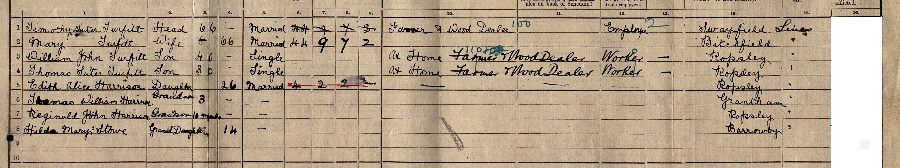 1 Timothy Tuter Turfitt Head 66 - Married 44 9 7 2 Farmer & Wood Dealer 100 Employer 2 Swayfield Lincs
2 Mary Turfitt Wife - 66 Married 44 9 7 2 Bitchfield "
3 William John Turfitt Son 40 - Single At Home Farmer & Wood Dealer Worker - Ropsley "
4 Thomas Tutor Turfitt Son 30 - Single At Home Farmer & Wood Dealer Worker - Ropsley "
5 Edith Alice Harrison Daughter 26 Married 4 2 2 - Ropsley "
6 Thomas William Harrison Grandson 3 - - Grantham "
7 Reginald John Harrison Grandson 10 months - Ropsley "
8 Hilda Mary Stowe Grand Daughter 14 - Barrowby "
9
10